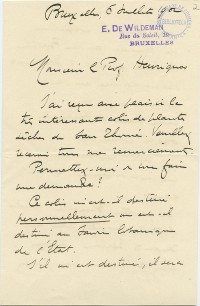 Bruxelles, 5 Juillet 1902
E. DE WILDEMAN
Rue du Soleil,
BRUXELLES
Monsieur le Prof Henriques
J'ai reçu avec plaisir la
très intéressante colis de plantes
sèches de San Thomé. Veuillez
recevoir tous mes remerciements.
Permettez-moi de vous faire
une demande?
Ce colis m'est-il destiné
personnellement ou est-il
destiné au Jardin botanique
de l'Etat.
S'il m'est destiné, il sera